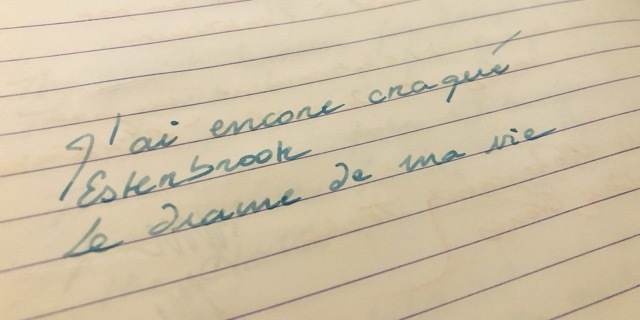 J'ai encore craqué
Esterbrook
Le drame de ma vie